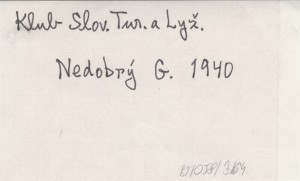 Klub Slov. Tur. a Lyž.
Nedobrý G. 1940